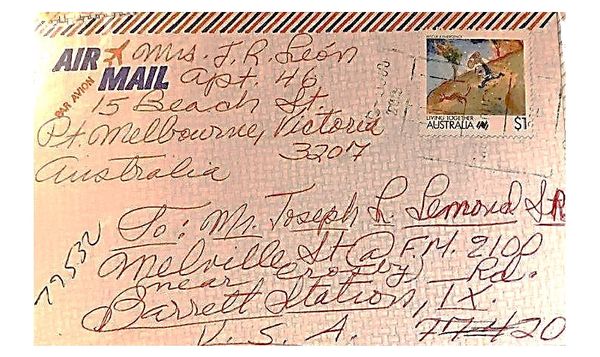 AIR MAIL
PAR AVION
Mrs. J. R. León
Apt. 46
15 Beach St.
Pt. Melbourne, Victoria
3207
Australia
RESCUE & EMERGENCY
LIVING TOGETHER
AUSTRALIA $1
To: Mr. Joseph L. Lemond SR.
Melville St @ F.M. 2100
near Crosby Rd.
Barrett Station, TX.
U. S. A. 77420
77532